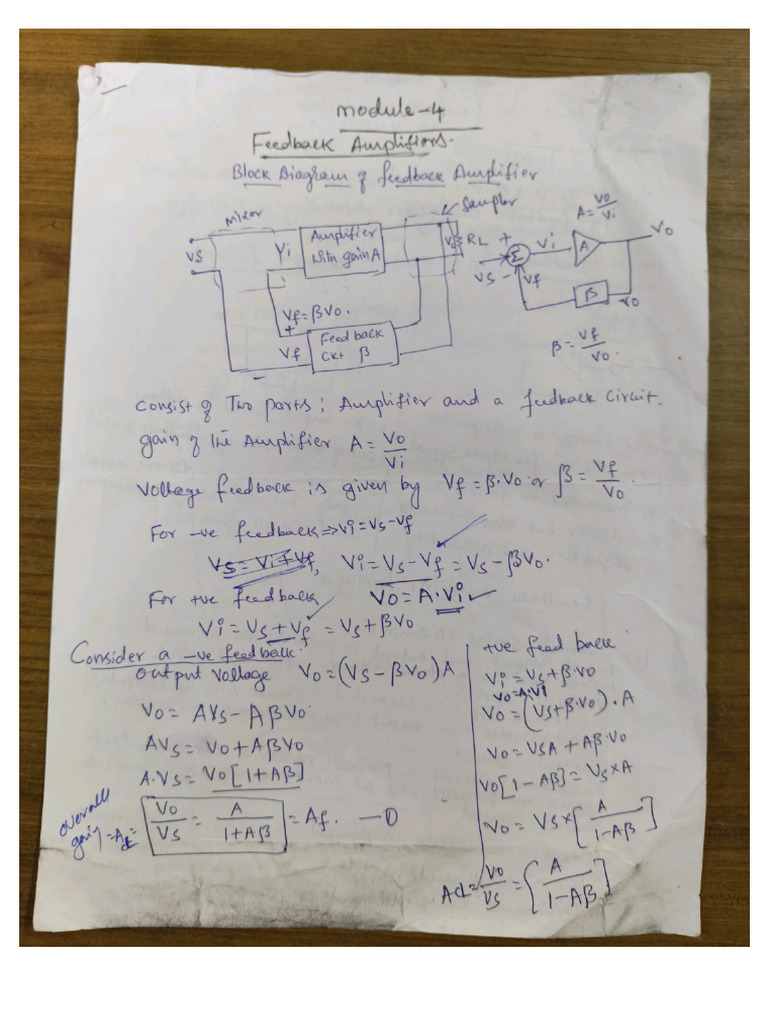 module-4
Feedback Amplifiers.
Block Diagram of feedback Amplifier
mixer
Sampler
VS
Vi
Amplifier
with gain A
Vo
RL
Vf = βVo.
+
Vf
-
Feedback
CKt β
A = Vo/Vi
+
Σ
VS
-
Vf
Vi
A
Vo
β
Vo
β = Vf/Vo.
Consist of Two parts; Amplifier and a feedback circuit.
gain of the Amplifier A = Vo/Vi
Voltage feedback is given by Vf = β.Vo or β = Vf/Vo.
For -ve feedback ⇒ Vi = Vs - Vf
Vs = Vi + Vf, Vi = Vs - Vf = Vs - βVo.
For +ve feedback Vo = A.Vi
Vi = Vs + Vf = Vs + βVo
Consider a -ve feedback
output voltage Vo = (Vs - βVo)A
Vo = AVs - AβVo.
AVs = Vo + AβVo
A.Vs = Vo[1+Aβ]
overall gain = Af = Vo/Vs = A/(1+Aβ) = Af. —①
+ve feed back
Vi = Vs + β.Vo
Vo = A.Vi
Vo = (Vs + β.Vo).A
Vo = VsA + Aβ.Vo
Vo[1-Aβ] = Vs×A
Vo = Vs×[A/(1-Aβ)]
Af = Vo/Vs = [A/(1-Aβ)]